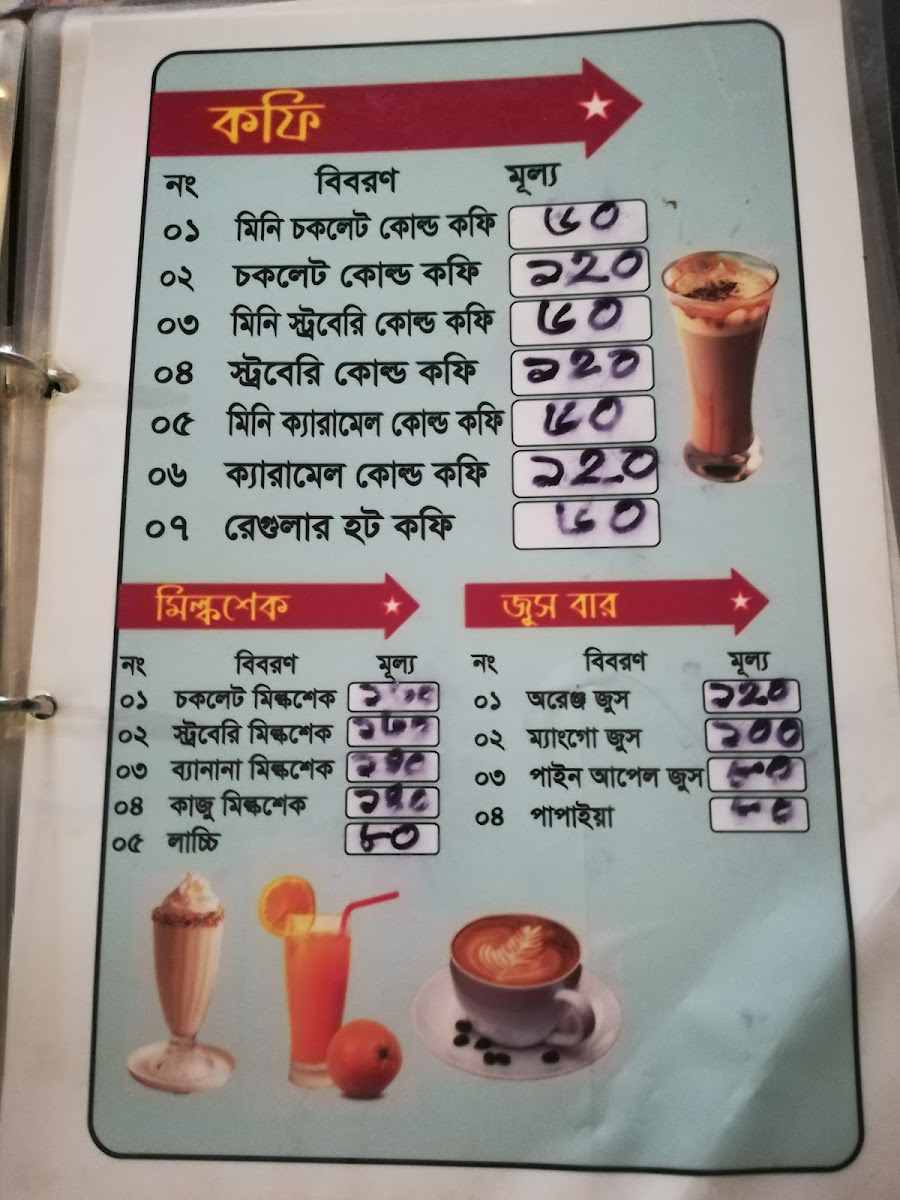 কফি
নং বিবরণ মূল্য
০১ মিনি চকলেট কোল্ড কফি ৬০
০২ চকলেট কোল্ড কফি ১২০
০৩ মিনি স্ট্রবেরি কোল্ড কফি ৬০
০৪ স্ট্রবেরি কোল্ড কফি ১২০
০৫ মিনি ক্যারামেল কোল্ড কফি ৬০
০৬ ক্যারামেল কোল্ড কফি ১২০
০৭ রেগুলার হট কফি ৬০
মিল্কশেক
নং বিবরণ মূল্য
০১ চকলেট মিল্কশেক
০২ স্ট্রবেরি মিল্কশেক
০৩ ব্যানানা মিল্কশেক
০৪ কাজু মিল্কশেক
০৫ লাচ্চি ৮০
জুস বার
নং বিবরণ মূল্য
০১ অরেঞ্জ জুস ১২০
০২ ম্যাংগো জুস ১০০
০৩ পাইন আপেল জুস
০৪ পাপাইয়া